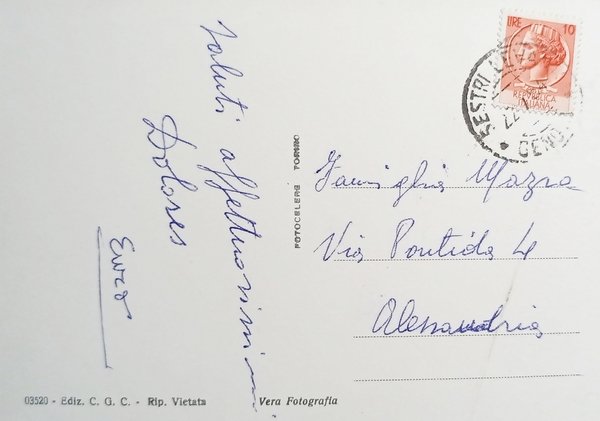 Saluti affettuosissimi
Dolores
Enzo
FOTOCELERE TORINO
LIRE 10
REPUBBLICA
ITALIANA
SESTRI LEVANTE
GENOVA
Famiglia Mazza
Via Pontida 4
Alessandria
03520 - Ediz. C. G. C. - Rip. Vietata
Vera Fotografia